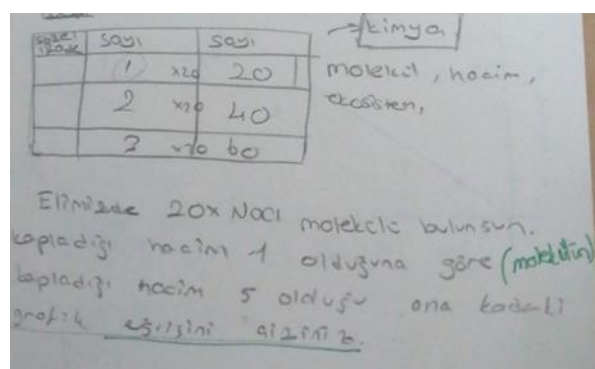 sayı sayı
1 x20 20
2 x20 40
3 x20 60
→ kimya
molekül, hacim,
ekosistem,
Elimizde 20x NaCl molekülü bulunsun.
kapladığı hacim 1 olduğuna göre (molekülün)
kapladığı hacim 5 olduğu ana kadarki
grafik eğrisini çiziniz.